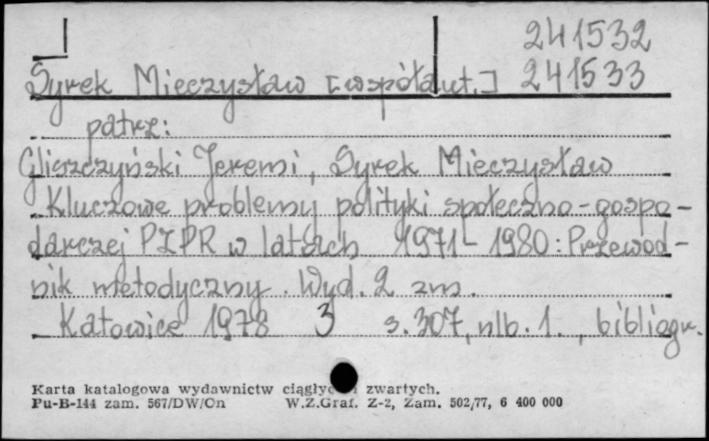 241532
Syrek Mieczysław [współaut.] 241533
patrz:
Gliszczyński Jeremi, Syrek Mieczysław
Kluczowe problemy polityki społeczno-gospo-
darczej PZPR w latach 1971-1980: Przewod-
nik metodyczny. Wyd. 2 zm.
Katowice 1978 3 s. 307, nlb. 1., bibliogr.
Karta katalogowa wydawnictw zwartych.
Pu-B-144 zam. 567/DW/Cn W.Z.Graf. Z-2, Zam. 502/77, 6 400 000